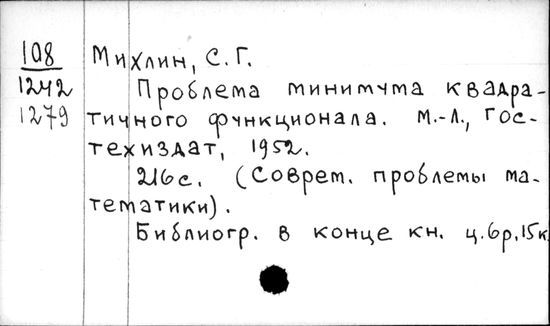 108 Михлин, С.Г.
1242 Проблема минимума квадра-
1279 тичного функционала. М.-Л., Гос-
техиздат, 1952.
216 с. (Соврем. проблемы ма-
тематики).
Библиогр. в конце кн. ц. 6р. 15к